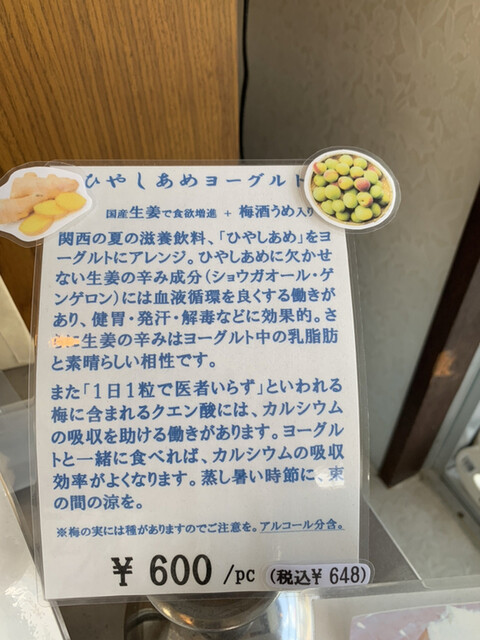 ひやしあめヨーグルト
国産生姜で食欲増進 + 梅酒うめ入り
関西の夏の滋養飲料、「ひやしあめ」をヨ
ーグルトにアレンジ。ひやしあめに欠かせ
ない生姜の辛み成分(ショウガオール・ジ
ンゲロン)には血液循環を良くする働きが
あり、健胃・発汗・解毒などに効果的。さ
生姜の辛みはヨーグルト中の乳脂肪
と素晴らしい相性です。
また「1日1粒で医者いらず」といわれる
梅に含まれるクエン酸には、カルシウム
の吸収を助ける働きがあります。ヨーグル
トと一緒に食べれば、カルシウムの吸収
効率がよくなります。蒸し暑い時節に、束
の間の涼を。
※梅の実には種がありますのでご注意を。アルコール分含。
¥ 600 /pc (税込¥ 648)